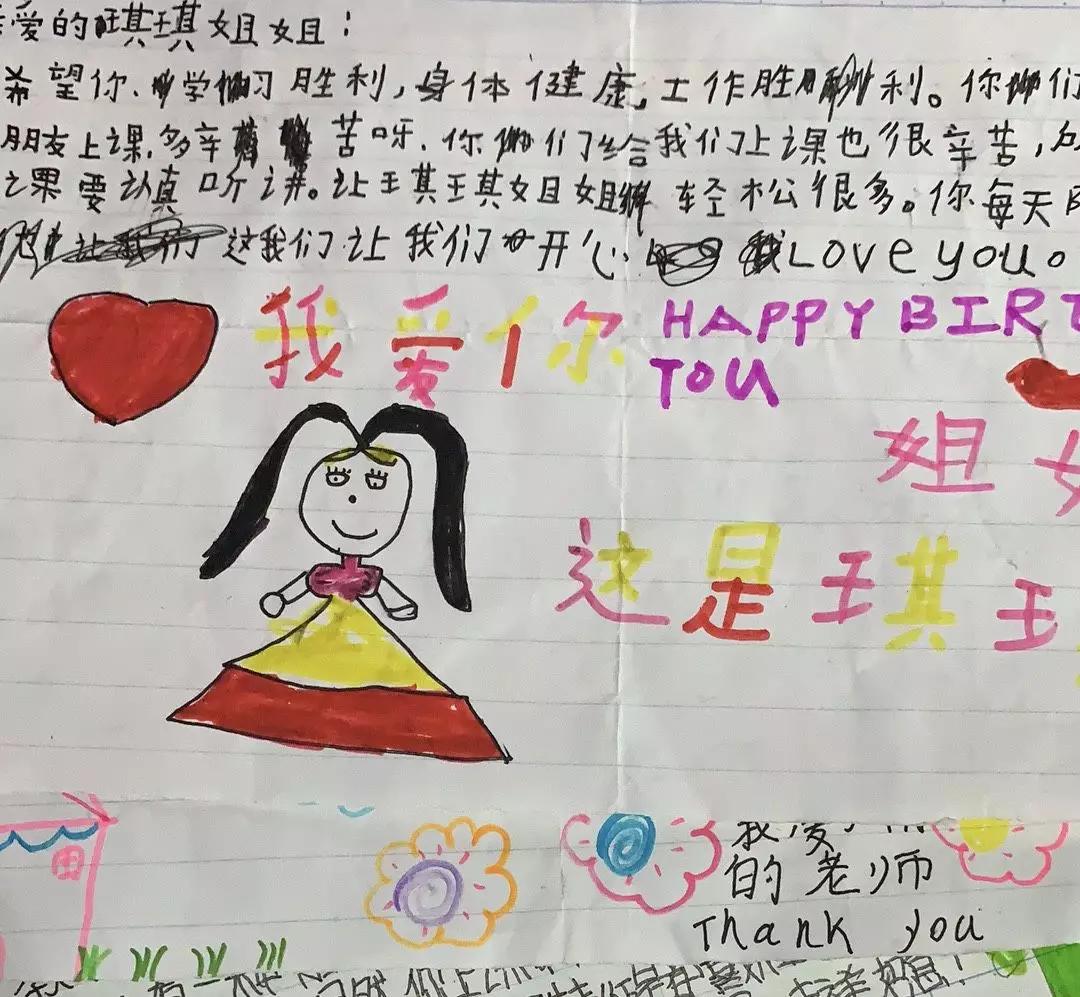 爱的琪琪姐姐：
希望你、学习胜利，身体健康，工作胜利。你们
朋友上课,多辛苦呀.你们给我们上课也很辛苦,
课要认真听讲。让琪琪姐姐轻松很多。你每天
这我们让我们开心 LOVe you。
我爱你 HAPPY BIRT
TOU
姐
这是琪王
我爱
的老师
Thank you